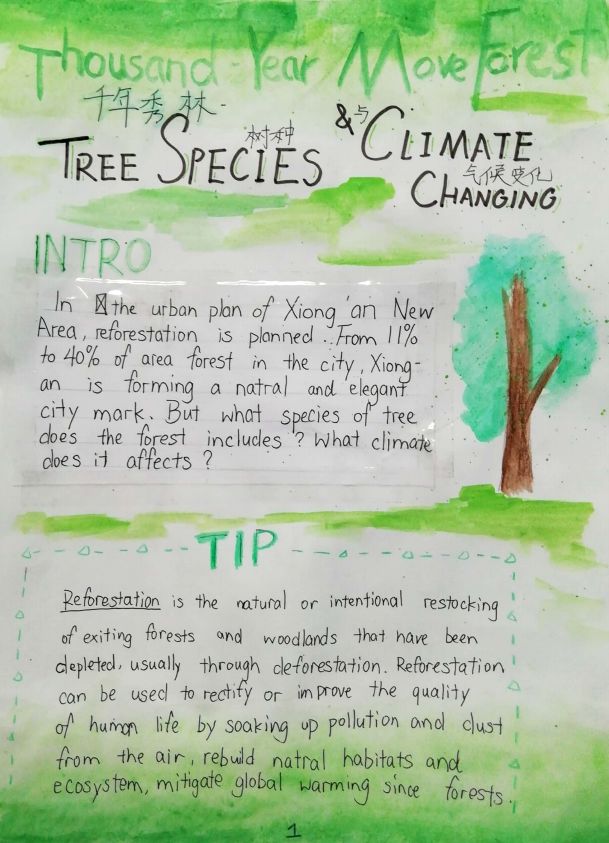 Thousand-Year Move Forest
千年秀林
TREE SPECIES 树种
& 与 CLIMATE
CHANGING 气候变化
INTRO
In the urban plan of Xiong'an New
Area, reforestation is planned. From 11%
to 40% of area forest in the city, Xiong-
an is forming a natral and elegant
city mark. But what species of tree
does the forest includes? What climate
does it affects?
TIP
Reforestation is the natural or intentional restocking
of exiting forests and woodlands that have been
depleted, usually through deforestation. Reforestation
can be used to rectify or improve the quality
of human life by soaking up pollution and dust
from the air, rebuild natral habitats and
ecosystem, mitigate global warming since forests.
1